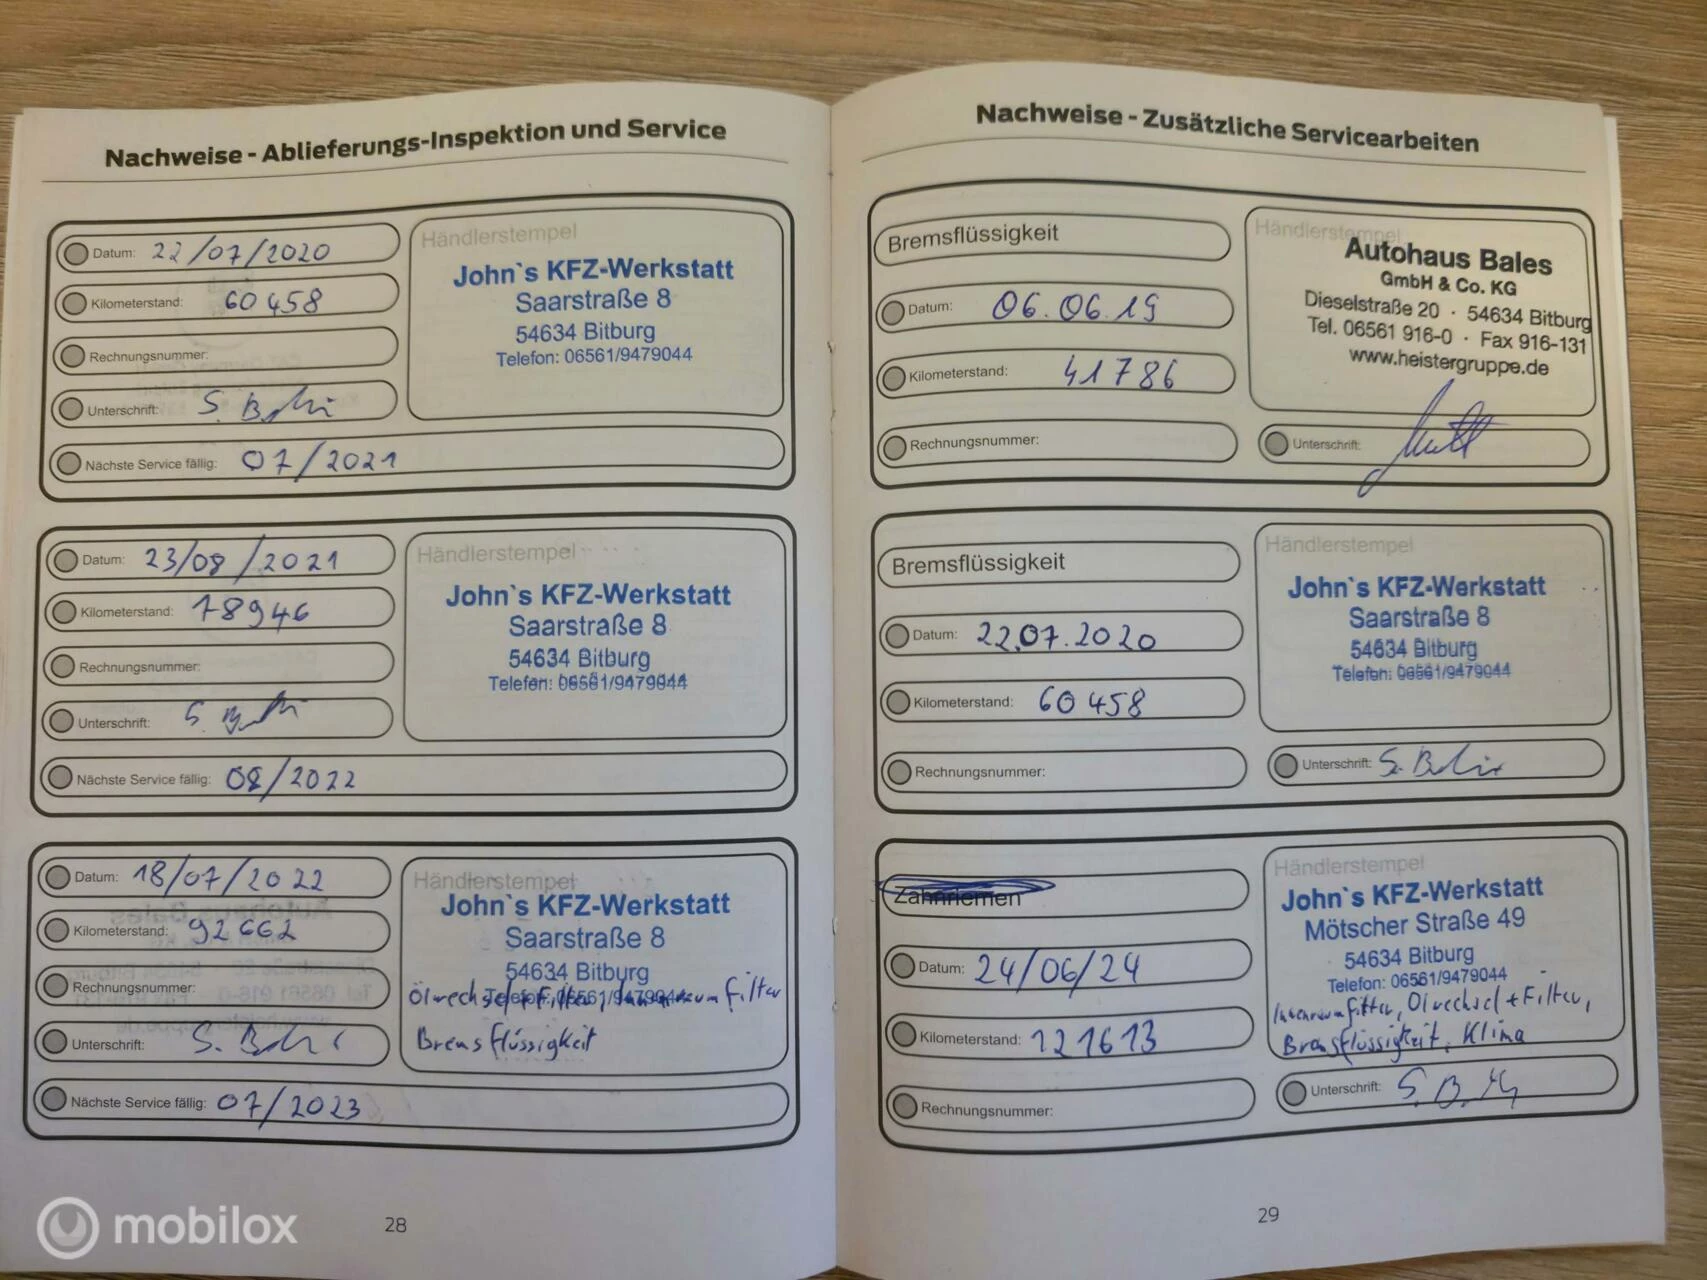 Nachweise - Ablieferungs-Inspektion und Service
Datum: 22/07/2020
Kilometerstand: 60458
Rechnungsnummer:
Unterschrift:
Nächste Service fällig: 07/2021
Händlerstempel
John`s KFZ-Werkstatt
Saarstraße 8
54634 Bitburg
Telefon: 06561/9479044
Datum: 23/08/2021
Kilometerstand: 78946
Rechnungsnummer:
Unterschrift:
Nächste Service fällig: 08/2022
Händlerstempel
John`s KFZ-Werkstatt
Saarstraße 8
54634 Bitburg
Telefon: 06561/9479044
Datum: 18/07/2022
Kilometerstand: 92662
Rechnungsnummer:
Unterschrift:
Nächste Service fällig: 07/2023
Händlerstempel
John`s KFZ-Werkstatt
Saarstraße 8
54634 Bitburg
Telefon: 06561/9479044
Ölwechsel + Filter, Innenraumfilter
Bremsflüssigkeit
28
Nachweise - Zusätzliche Servicearbeiten
Bremsflüssigkeit
Datum: 06.06.19
Kilometerstand: 41786
Rechnungsnummer:
Händlerstempel
Autohaus Bales
GmbH & Co. KG
Dieselstraße 20 · 54634 Bitburg
Tel. 06561 916-0 · Fax 916-131
www.heistergruppe.de
Unterschrift:
Bremsflüssigkeit
Datum: 22.07.2020
Kilometerstand: 60458
Rechnungsnummer:
Händlerstempel
John`s KFZ-Werkstatt
Saarstraße 8
54634 Bitburg
Telefon: 06561/9479044
Unterschrift:
Zahnriemen
Datum: 24/06/24
Kilometerstand: 121613
Rechnungsnummer:
Händlerstempel
John`s KFZ-Werkstatt
Mötscher Straße 49
54634 Bitburg
Telefon: 06561/9479044
Innenraumfilter, Ölwechsel + Filter,
Bremsflüssigkeit, Klima
Unterschrift:
29
mobilox